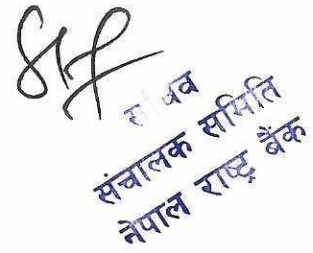 संचालक समिति
नेपाल राष्ट्र बैंक